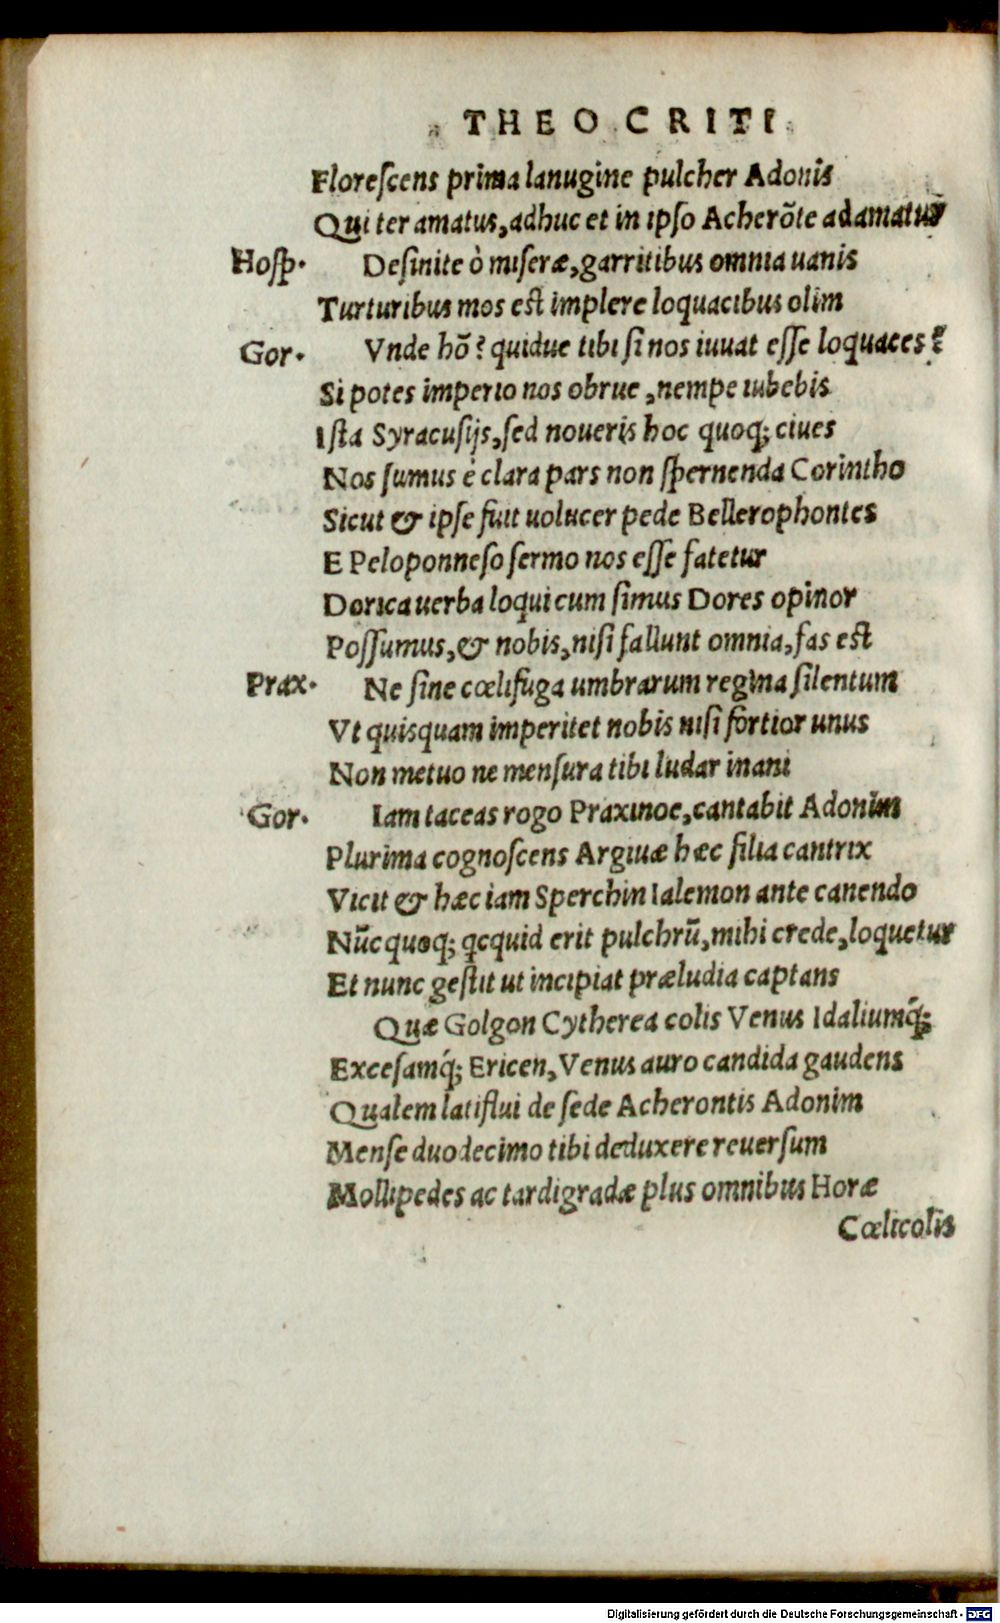 THEOCRITI
Florescens prima lanugine pulcher Adonis
Qui ter amatus, adhuc et in ipso Acherōte adamatur
Hosp. Desinite ò miseræ, garritibus omnia uanis
Turturibus mos est implere loquacibus olim
Gor. Vnde hō? quidue tibi si nos iuuat esse loquaces?
Si potes imperio nos obrue, nempe iubebis
Ista Syracusijs, sed noueris hoc quoq; ciues
Nos sumus è clara pars non spernenda Corintho
Sicut & ipse fuit uolucer pede Bellerophontes
E Peloponneso sermo nos esse fatetur
Dorica uerba loqui cum simus Dores opinor
Possumus, & nobis, nisi fallunt omnia, fas est
Prax. Ne sine cœlifuga umbrarum regina silentum
Vt quisquam imperitet nobis nisi fortior unus
Non metuo ne mensura tibi ludar inani
Gor. Iam taceas rogo Praxinoe, cantabit Adonim
Plurima cognoscens Argiuæ hæc filia cantrix
Vicit & hæc iam Sperchin Ialemon ante canendo
Nūc quoq; qcquid erit pulchrū, mihi crede, loquetur
Et nunc gestit ut incipiat præludia captans
Quæ Golgon Cytherea colis Venus Idaliumq́;
Excesamq́; Ericen, Venus auro candida gaudens
Qualem latiflui de sede Acherontis Adonim
Mense duodecimo tibi deduxere reuersum
Mollipedes ac tardigradæ plus omnibus Horæ
Cœlicolis
Digitalisierung gefördert durch die Deutsche Forschungsgemeinschaft - DFG